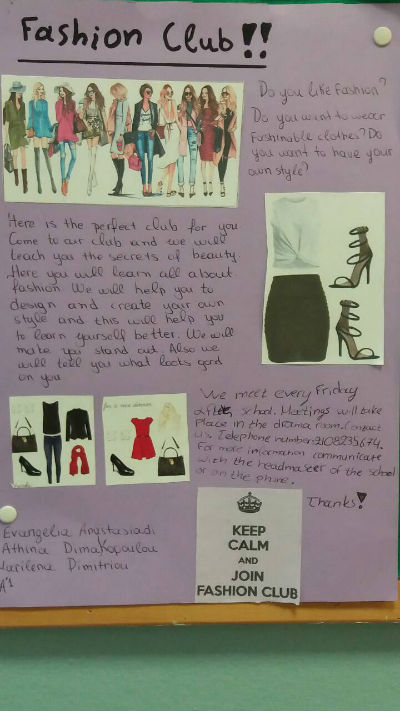 Fashion Club!!
Do you like Fashion?
Do you want to wear
Fashinable clothes? Do
you want to have your
own style?
Here is the perfect club for you
Come to our club and we will
teach you the secrets of beauty.
Here you will learn all about
fashion. We will help you to
design and create your own
style and this will help you
to learn yourself better. We will
make you stand out. Also we
will tell you what looks good
on you
for a nice dinner
We meet every Friday
after school. Meetings will take
Place in the drama room. Contact
us. Telephone number: 2108235674.
For more information communicate
with the headmaster of the school
or on the phone.
Thanks!
Evangelia Anastasiadi
Athina Dimakopoulou
Marilena Dimitriou
A'1
KEEP
CALM
AND
JOIN
FASHION CLUB